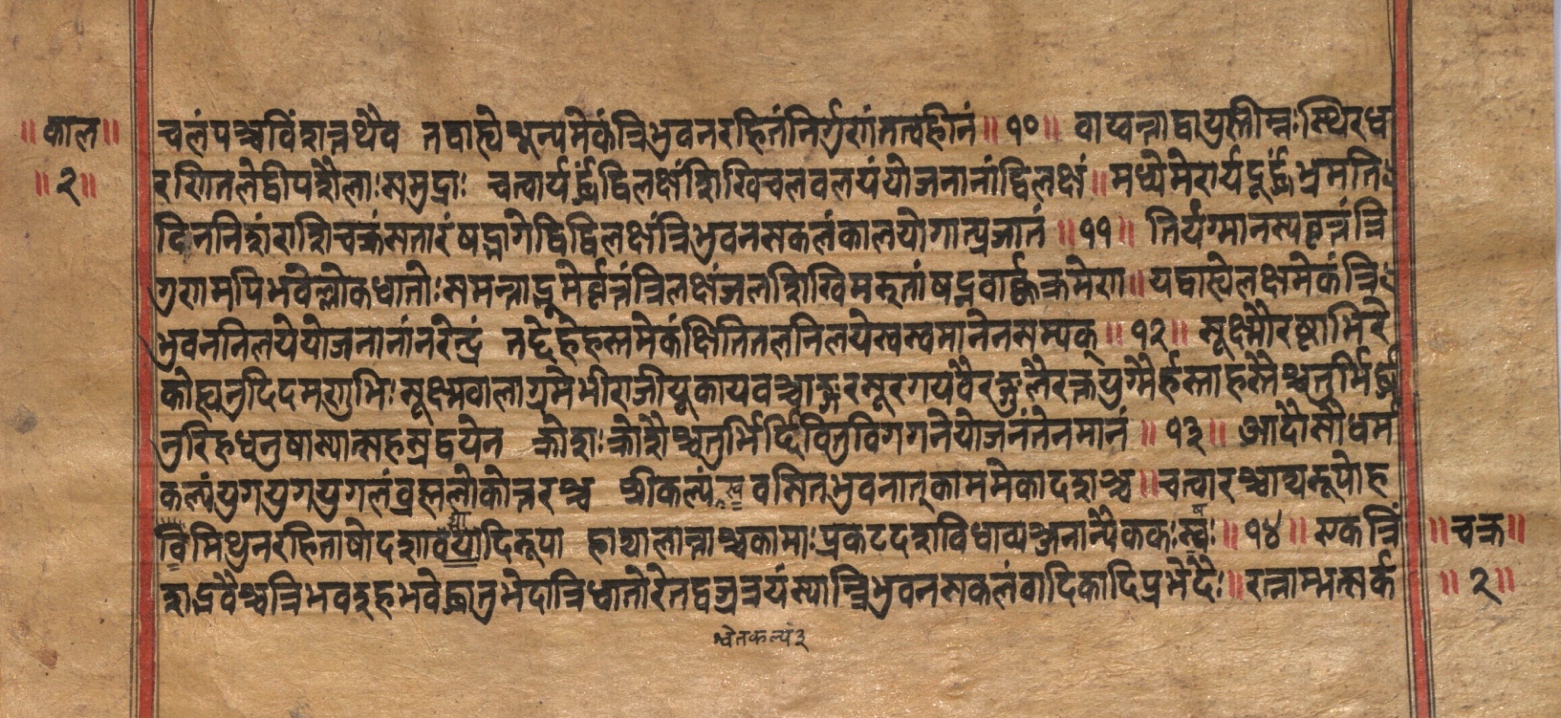 ॥ काल ॥
॥ २ ॥
चलं पञ्चविंशत्तथैव तद्बाह्ये शून्यमेकं त्रिभुवनरहितं निर्गुणं तत्वहीनं ॥ १० ॥ वाय्वन्ताद्वायुसीम्नः स्थिरध
रणितले द्वीपशैलाः समुद्राः चत्वार्यर्द्धं द्विलक्षं शिखिचलवलयं योजनानां द्विलक्षं ॥ मध्ये मेरार्यदूर्द्धं भ्रमति
दिननिशं राशिचक्रं सतारं षड्भागे द्विद्विलक्षं त्रिभुवनसकलं कालयोगात्प्रजातं ॥ ११ ॥ तिर्यग्मानस्य वृत्तं त्रि
गुणमपि भवेल्लोकधातोः समन्ताद्भूमेर्वृत्तं त्रिलक्षं जलशिखिमरुतां षड्नवार्क्कक्रमेण ॥ यद्बाह्ये लक्षमेकं त्रि
भुवननिलये योजनानां नरेन्द्रं तद्देहे हस्तमेकं क्षितितलनिलये स्वस्वमानेन सम्यक् ॥ १२ ॥ सूक्ष्मैरष्टाभिरे
को ह्यनुदिदमणुभिः सूक्ष्मवालाग्रमेभी राजीयूकायवश्चाङ्गरसूरगयवैरङ्गुलैरक्रयुग्मैर्हस्ता हस्तैश्चतुर्भिर्द्ध
नुरिह धनुषा स्यात्सहस्रद्वयेन क्रोशः क्रोशैश्चतुर्भिर्दिवि तु विगगने योजनं तेन मानं ॥ १३ ॥ आदौ सौधर्म
कल्पं युगयुगयुगलं ब्रह्मलोकोत्तरश्च श्रीकल्पं श्व वसितभुवनात् काममेकादशश्च ॥ चत्वारश्चाप्यरूपो ह
वि मिथुनरहिता षोदशावद्यादिरूपा हाद्यालान्ताश्च कामाः प्रकटदशविधा व्यञ्जनान्येककः स्वैः ॥ १४ ॥ एकत्रिं
शद्भवैश्च त्रिभवदुह भवेद्धातुभेदा त्रिधातोरेतद्वज्रत्रयं स्यान्त्रिभुवनसकलं वादिकादिप्रभेदैः ॥ रत्नाम्भत्सर्क
॥ चक्र ॥
॥ २ ॥
श्वेतकल्पं ३